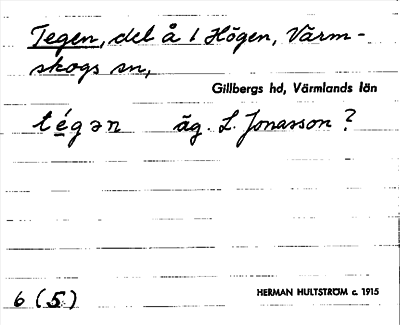 Tegen, del å 1 Högen, Värm-
skogs sn,
Gillbergs hd, Värmlands län
tégən äg. L. Jonasson?
6 (5)
HERMAN HULTSTRÖM c. 1915